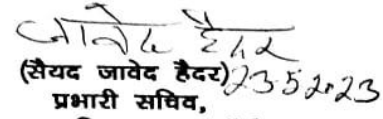 जावेद हैदर
(सैयद जावेद हैदर) 23.5.2023
प्रभारी सचिव,